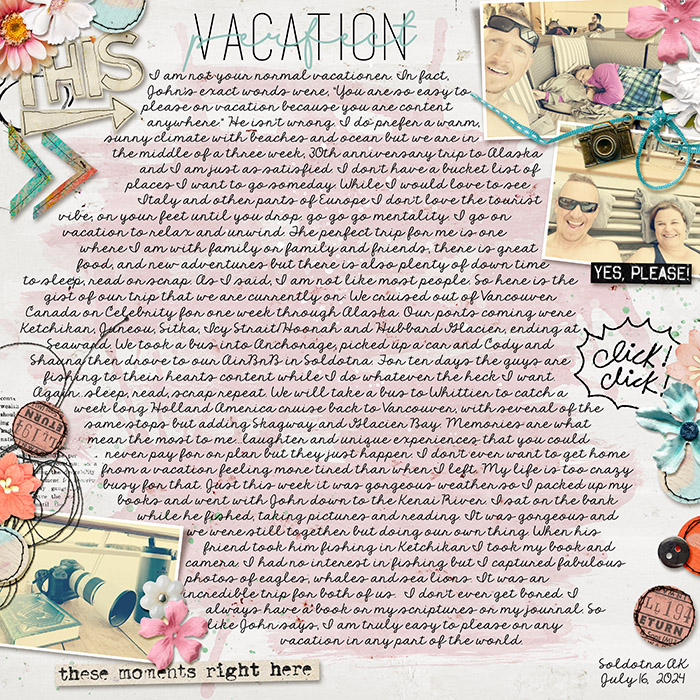 VACATION
perfect
THIS
I am not your normal vacationer. In fact,
John's exact words were, "You are so easy to
please on vacation because you are content
anywhere." He isn't wrong. I do prefer a warm,
sunny climate with beaches and ocean but we are in
the middle of a three week, 30th anniversary trip to Alaska
and I am just as satisfied. I don't have a bucket list of
places I want to go someday. While I would love to see
Italy and other parts of Europe I don't love the tourist
vibe, on your feet until you drop, go go go mentality. I go on
vacation to relax and unwind. The perfect trip for me is one
where I am with family or family and friends, there is great
food, and new adventures but there is also plenty of down time
to sleep, read or scrap. As I said, I am not like most people. So here is the
gist of our trip that we are currently on. We cruised out of Vancouver
Canada on Celebrity for one week through Alaska. Our ports coming were
Ketchikan, Juneou, Sitka, Icy Strait/Hoonah and Hubbard Glacier, ending at
Seaward. We took a bus into Anchorage, picked up a car and Cody and
Shauna then drove to our AirBnB in Soldotna. For ten days the guys are
fishing to their hearts content while I do whatever the heck I want.
Again.. sleep, read, scrap repeat. We will take a bus to Whittier to catch a
week long Holland America cruise back to Vancouver, with several of the
same stops but adding Skagway and Glacier Bay. Memories are what
mean the most to me.. laughter and unique experiences that you could
never pay for or plan but they just happen. I don't ever want to get home
from a vacation feeling more tired than when I left. My life is too crazy
busy for that. Just this week it was gorgeous weather so I packed up my
books and went with John down to the Kenai River. I sat on the bank
while he fished, taking pictures and reading. It was gorgeous and
we were still together but doing our own thing. When his
friend took him fishing in Ketchikan I took my book and
camera. I had no interest in fishing but I captured fabulous
photos of eagles, whales and sea lions. It was an
incredible trip for both of us. I don't ever get bored. I
always have a book or my scriptures or my journal. So
like John says, I am truly easy to please on any
vacation in any part of the world.
YES, PLEASE!
click!
click!
these moments right here
Soldotna AK
July 16, 2024